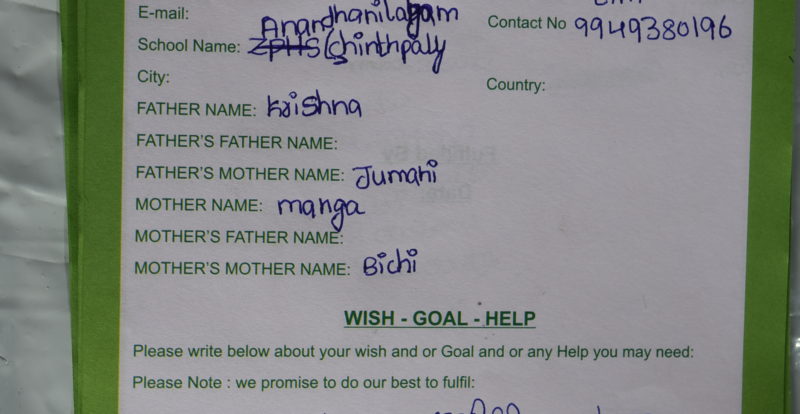 E-mail:
Contact No 9949380196
Anandhanilagam
School Name: ZPHS Chinthpally
City:
Country:
FATHER NAME: Krishna
FATHER'S FATHER NAME:
FATHER'S MOTHER NAME: Jumani
MOTHER NAME: manga
MOTHER'S FATHER NAME:
MOTHER'S MOTHER NAME: Bichi
WISH - GOAL - HELP
Please write below about your wish and or Goal and or any Help you may need:
Please Note : we promise to do our best to fulfil: